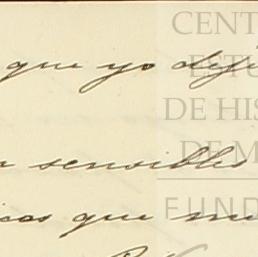 que yo dejé
sensibles
icas que mu
CENT
ESTU
DE HIS
DE M
FUND